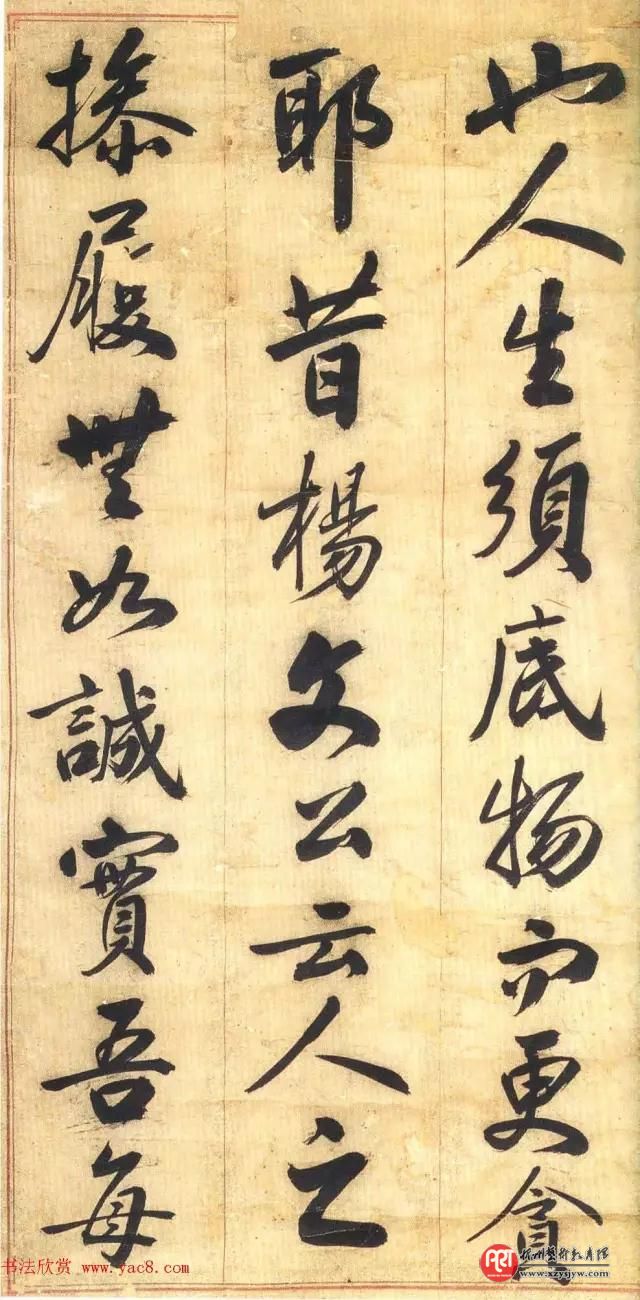 也人生須底物而更貪
耶昔楊文公云人之
操履無如誠實吾每
书法欣赏 www.yac8.com
ART
www.xzysjyw.com